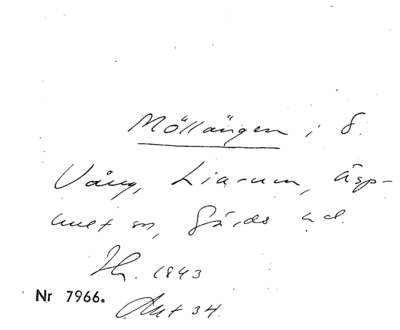 Möllängen i S.
Vång, Liarum, Äsp-
huet sn, Gärds hd.
1843
Nr 7966. Akt 34.